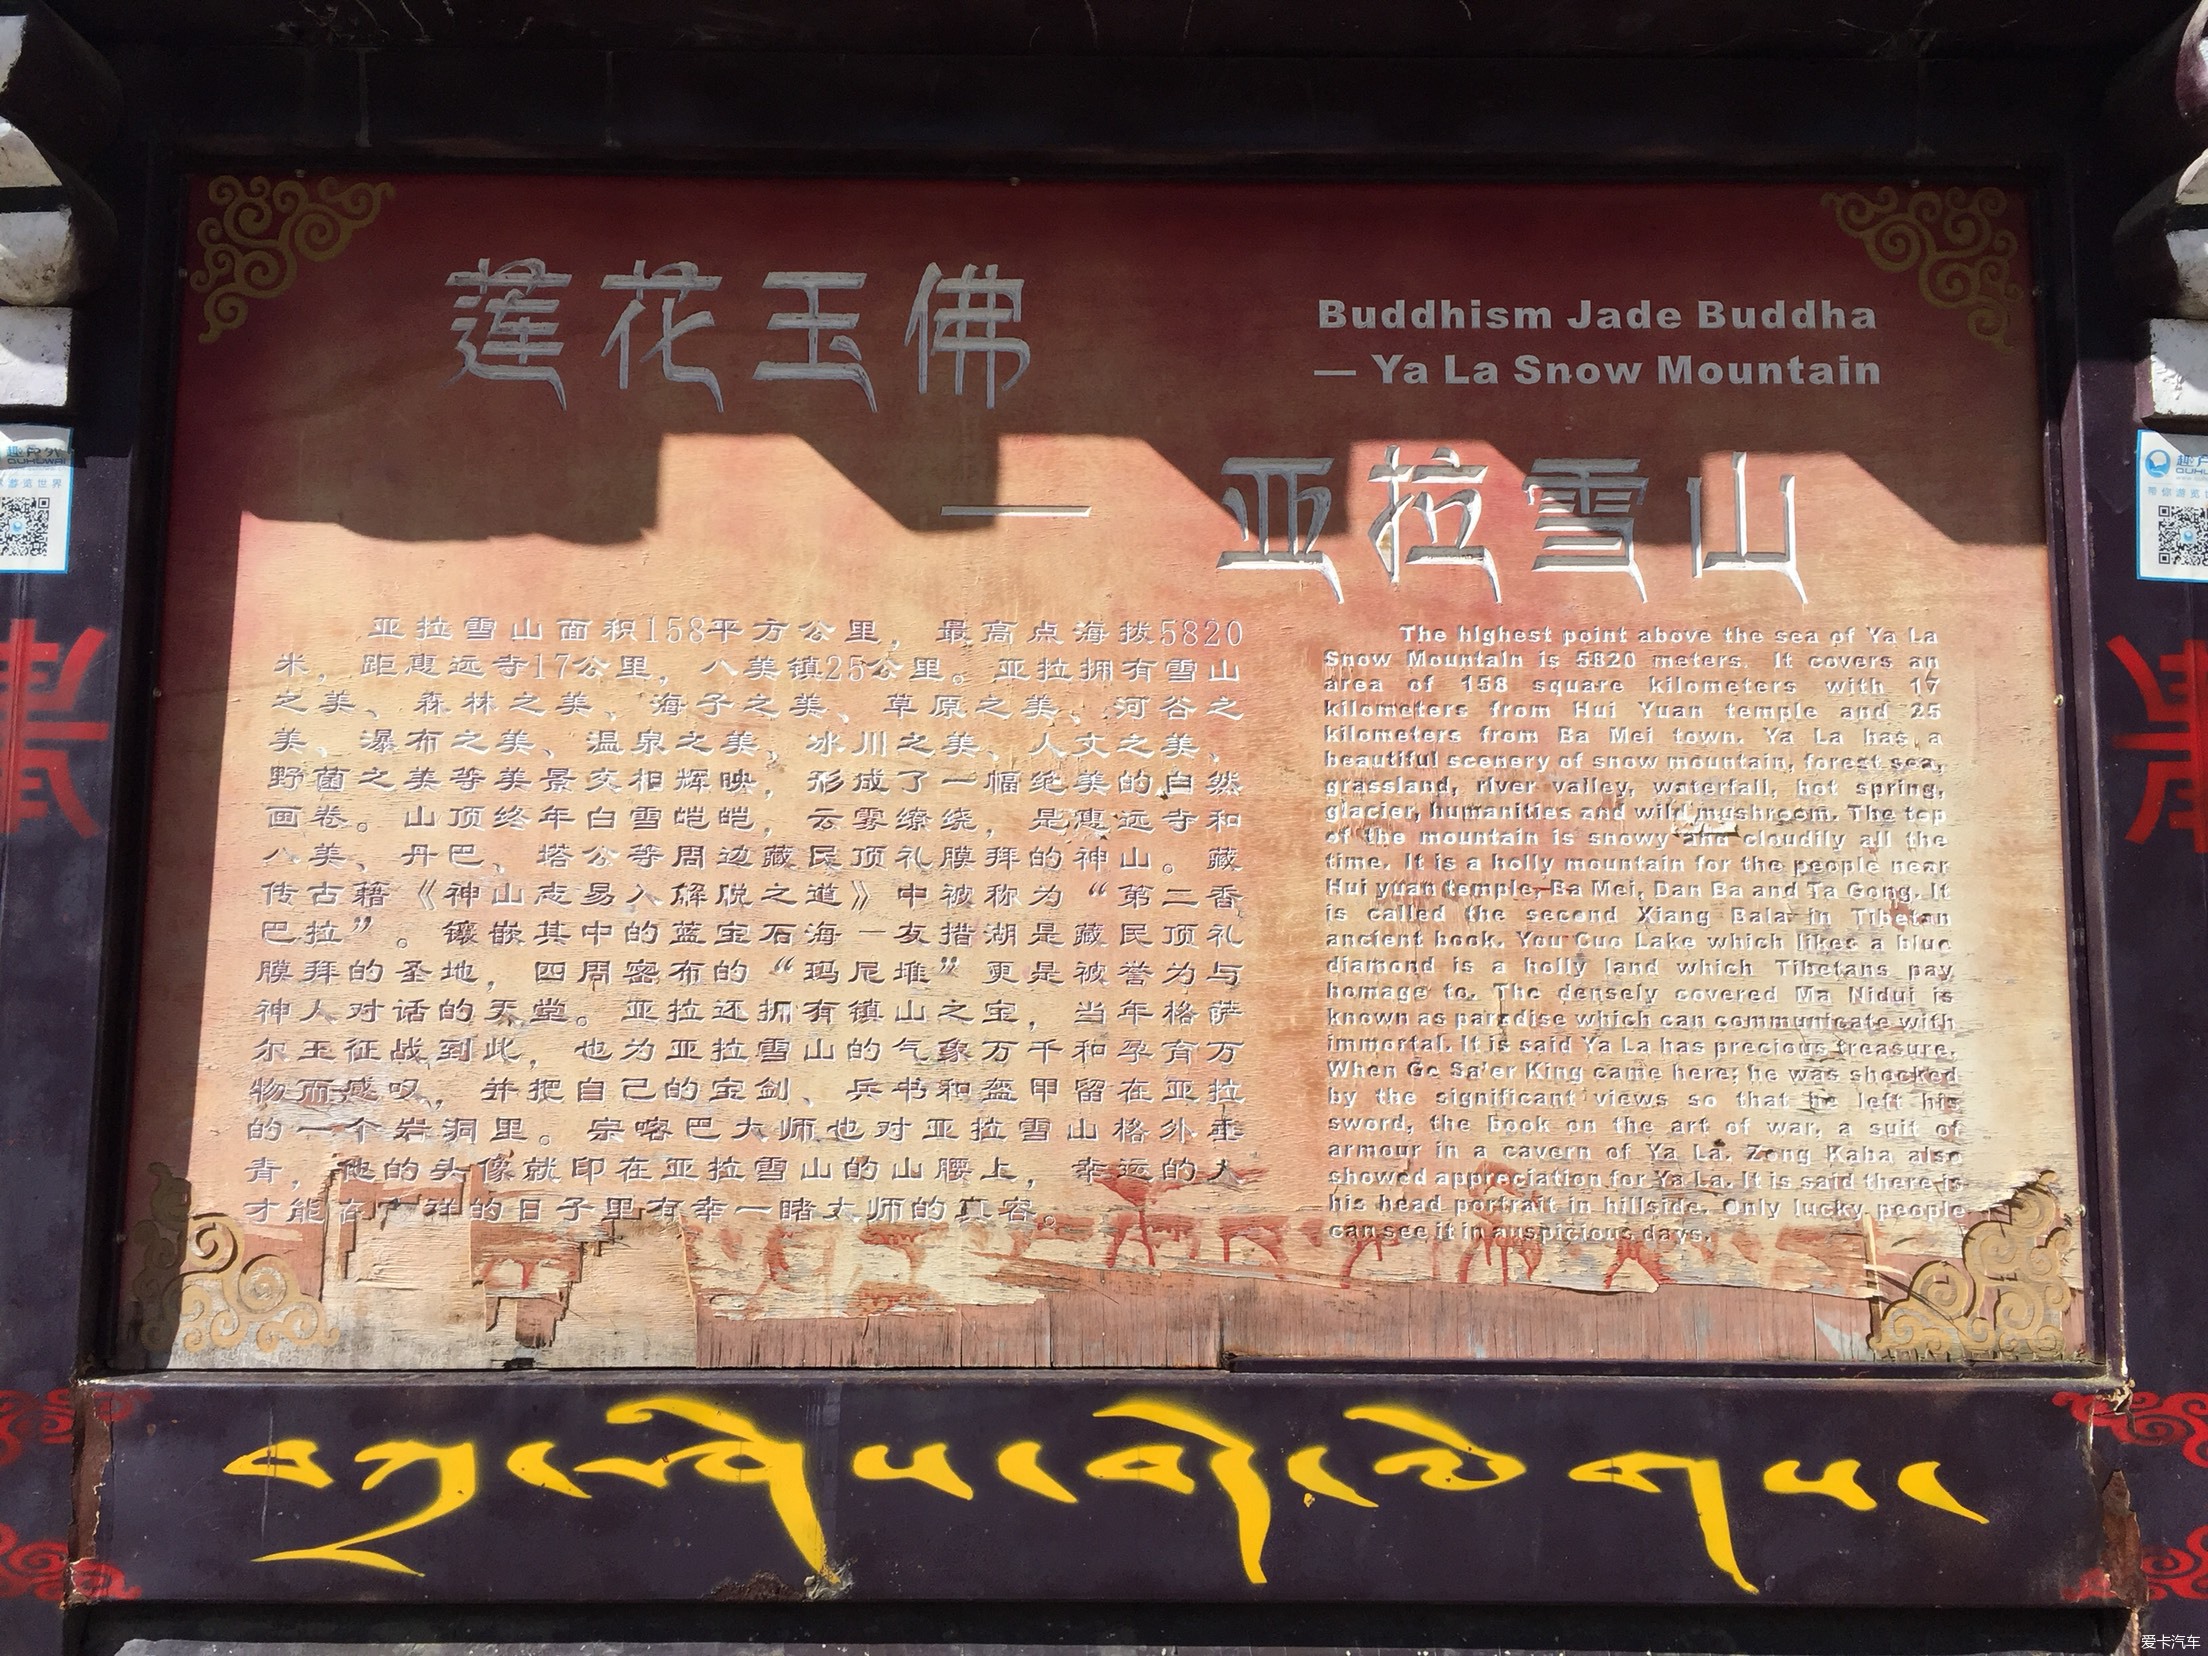 莲花玉佛
——亚拉雪山
Buddhism Jade Buddha
— Ya La Snow Mountain
亚拉雪山面积158平方公里，最高点海拔5820
米，距惠远寺17公里，八美镇25公里。亚拉拥有雪山
之美、森林之美、海子之美、草原之美、河谷之
美、瀑布之美、温泉之美、冰川之美、人文之美、
野菌之美等美景交相辉映，形成了一幅绝美的自然
画卷。山顶终年白雪皑皑，云雾缭绕，是惠远寺和
八美、丹巴、塔公等周边藏民顶礼膜拜的神山。藏
传古籍《神山志易入解脱之道》中被称为“第二香
巴拉”。镶嵌其中的蓝宝石海一友措湖是藏民顶礼
膜拜的圣地，四周密布的“玛尼堆”更是被誉为与
神人对话的天堂。亚拉还拥有镇山之宝，当年格萨
尔王征战到此，也为亚拉雪山的气象万千和孕育万
物而感叹，并把自己的宝剑、兵书和盔甲留在亚拉
的一个岩洞里。宗喀巴大师也对亚拉雪山格外垂
青，他的头像就印在亚拉雪山的山腰上，幸运的人
才能在祥的日子里有幸一睹大师的真容。
The highest point above the sea of Ya La
Snow Mountain is 5820 meters. It covers an
area of 158 square kilometers with 17
kilometers from Hui Yuan temple and 25
kilometers from Ba Mei town. Ya La has a
beautiful scenery of snow mountain, forest sea,
grassland, river valley, waterfall, hot spring,
glacier, humanities and wild mushroom. The top
of the mountain is snowy and cloudily all the
time. It is a holly mountain for the people near
Hui yuan temple, Ba Mei, Dan Ba and Ta Gong. It
is called the second Xiang Bala in Tibetan
ancient book. You Cuo Lake which likes a blue
diamond is a holly land which Tibetans pay
homage to. The densely covered Ma Nidui is
known as paradise which can communicate with
immortal. It is said Ya La has precious treasure.
When Ge Sa'er King came here; he was shocked
by the significant views so that he left his
sword, the book on the art of war, a suit of
armour in a cavern of Ya La. Zong Kaba also
showed appreciation for Ya La. It is said there is
his head portrait in hillside. Only lucky people
can see it in auspicious days.
爱卡汽车